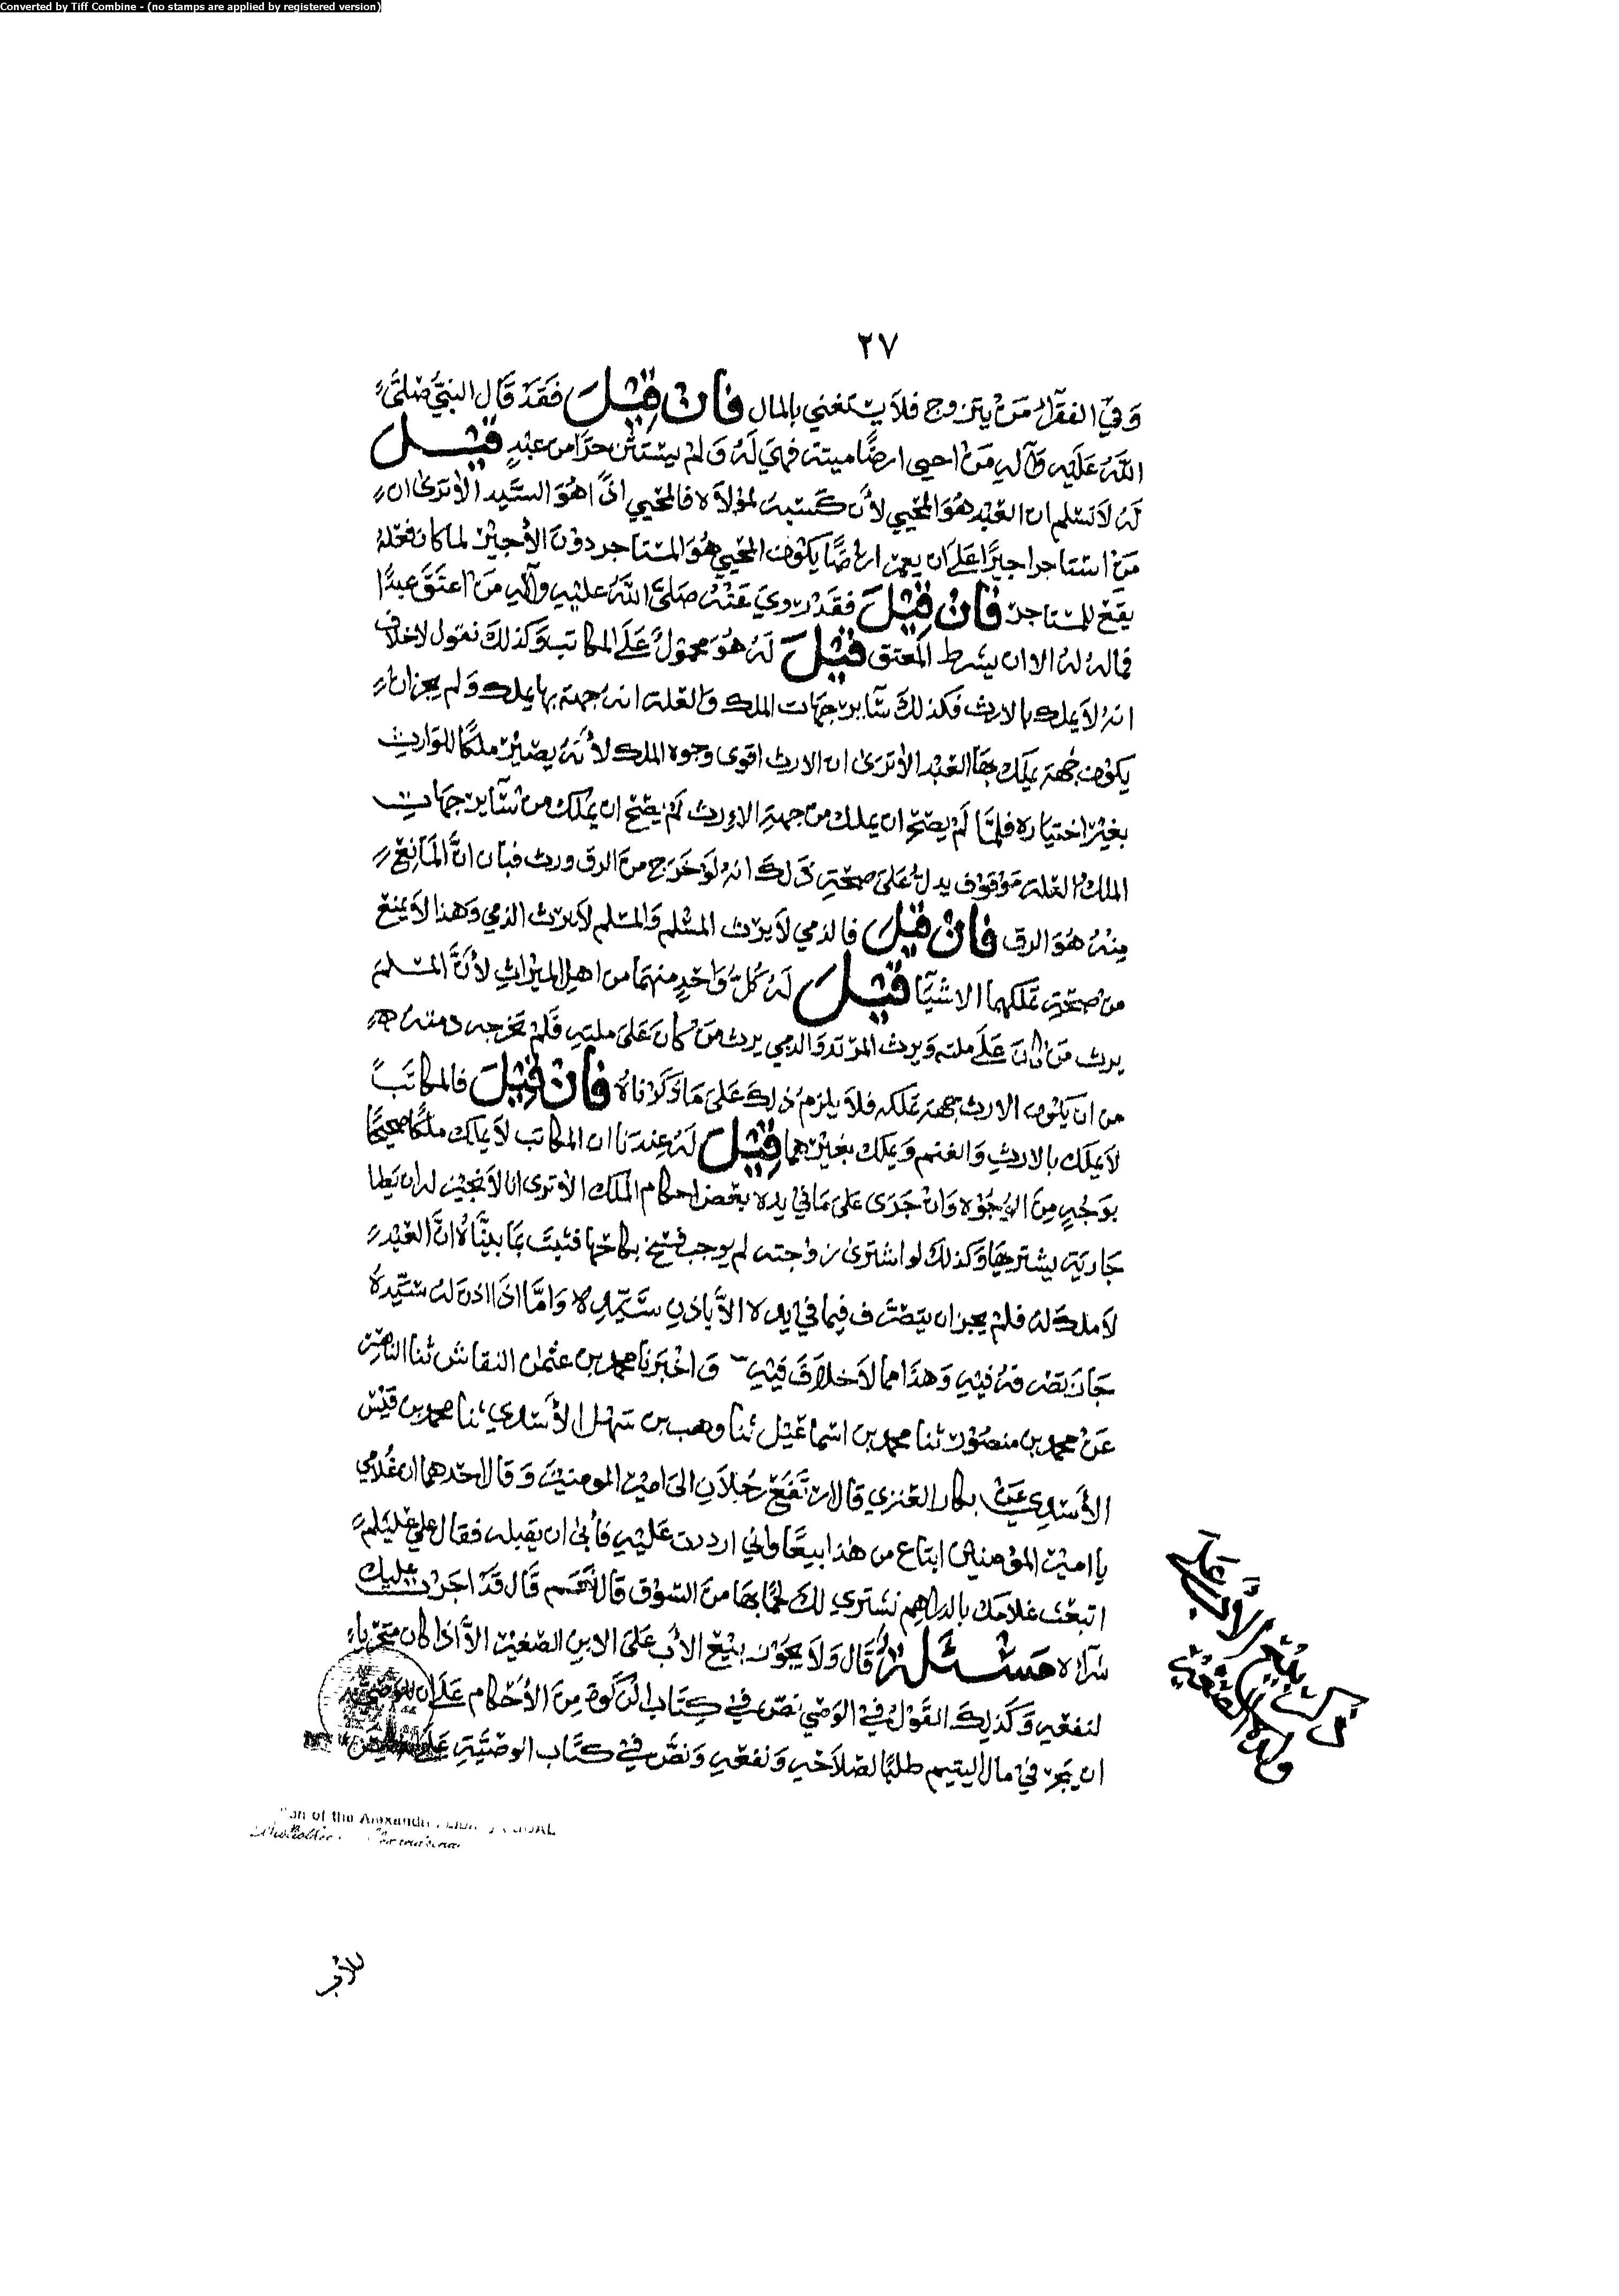 Converted by Tiff Combine - (no stamps are applied by registered version)
٢٧
وَفي الفقرآء مَنْ يتزوج فلاَ يستغني بالمال فَانْ قِيْلَ فَقَدْ قَالَ النبيُّ صَلَّى
اللهُ عَلَيْهِ وَآلِهِ مَنْ احيى ارضًا ميتة فهي لَهُ وَلمْ يسْتثن حرًّا من عبْدٍ قيْل
لَهُ لاَ نسَلم ان العَبْد هُوَ المُحْيي لأن كسْبهُ لمَوْلاَه فالمحْيي اذًا هُوَ السَّيد الأ ترَى ان
مَنْ استاجر اجيرًا عَلى ان يعمر ارضًا يَكُون المحْيي هُوَ المسْتاجر دُوْنَ الأجيْر لما كان فعْلهُ
يقع للمسْتاجر فَانْ قِيْلَ فقَدْ رويَ عَنْهُ صَلَّى اللهُ عَليْهِ وآلهِ مَنْ اعتَقَ عبدًا
فماله لهُ الا ان يشرط المعتق قِيْلَ لَهُ هُوَ محمُوْل عَلَى المكاتب وَكذلكَ نقول لاخلاف
انهُ لاَ يملك بالارث فَكذلكَ سَآير جهَات الملك وَالعلة انهُ جهة بها يملك وَلم يجز ان
يكوْن جهة يملك بهَا العَبْد الأ ترَى ان الارث اقوى وجوه الملك لأنهُ يصيْر ملكًا للوَارثِ
بغيْر اختيَاره فلمَّا لَمْ يصحّ ان يملك منْ جهةِ الارث لَمْ يصحّ ان يملك من سَآير جهَاتِ
الملك العلة مَوْقوْف يدلُّ عَلى صحّةِ ذلكَ انهُ لَوْ خَرَج مِنَ الرق ورث فبان انَّ المَانِعَ
مِنْهُ هُوَ الرق فَانْ قيْل فالذمي لاَ يرث المسْلم وَالمسلم لاَ يرث الذمي وَهذا لاَ يمنع
منْ صحّةِ تملكهما الاشيآء قيْل لَهُ كلُّ وَاحِدٍ منهمَا من اهل الميْراثِ لأنَّ المسْلم
يرث مَنْ كانَ عَلَى ملته وَيرث المرْتد وَالذمي يرث مَنْ كانَ عَلى ملتهِ فَلمْ تخرجه ذمته
من ان يكوْن الارث جهة تملكه فلاَ يلزمُ ذلكَ عَلى مَا ذَكرناهُ فَانْ قِيْلَ فالمكاتَب
لاَ يملك بالارثِ وَالغنم وَيملك بغيْرهما قِيْلَ لهُ عندنا ان المكاتب لاَ يملك ملكًا صحيحًا
بوَجْهٍ مِنَ الوُجُوْه وَانْ جَرَى عَلى مَا في يده بعْض احكام الملك الاَ ترى انا لاَ نجيْز له ان يَطَا
جَاريَة يشتريهَا وَكذلكَ لو اشترى زوْجته لم يوجب فسْخ نكاحها فثبتَ بمَا بينَّاهُ انَّ العَبْدَ
لاَ ملكَ له فلمْ يجز ان يتصَرَّف فيمَا في يده الاَّ باذنِ سَيّدِه وَامَّا اذَا اذن لهُ سَيّدهُ
جَازَ تصَرفهُ فيْهِ وَهذَا مما لاَ خلاَفَ فيْهِ وَاخْبَرنَا محمد بن عثمان النقاش ثنا الناصر
عَنْ محمد بن منصُوْر ثنا محمد بن اسْماعيْل ثنا وهب بن سَهْل الأسَدي ثنا محمد بن قَيْس
الأسَدي عَنْ بكار العنزي قالَ رفَع رَجُلاَن الى اميْر المومنيْن وَقال احدهما ان غُلامي
يا اميْر المؤمنيْن ابتاع من هذا بيعًا وَاني اردت عَليْهِ فأبى ان يقبله فقال علي عليْهِ السلم
اتبعَث غلامك بالدراهم نشتري لكَ لحمًا بهَا منَ السُّوْق قالَ نَعَم قَالَ قَدْ اجَزْتُ عليك
شرآءه مَسْئَلة قَال وَلاَ يجُوْز بيْع الأب عَلى الابن الصّغيْر الاَّ اذا كان متحَرّيا
لنفعهِ وَكَذلِكَ القَوْل في الوَصّي نصَّ في كِتَاب مِنَ الأحْكام عَلى ان للوَصي
ان يتجر في مال اليتيم طلبًا لصَلاَحْهِ وَنفعْهِ وَنصَّ في كتَاب الوَصيَّةِ
ذكر بيْع الأب على
ولده الصّغيْر